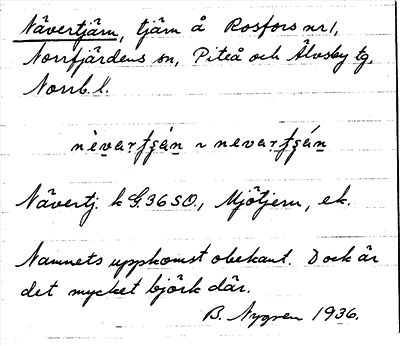 Nävertjärn, tjärn å Rosfors nr 1,
Norrfjärdens sn, Piteå och Älvsby tg,
Norrb. l.
nèvarʈʂän ~ nevarʈʂän
Nävertj. k G. 36 SO, Mjötjern, ek.
Namnets uppkomst obekant. Dock är
det mycket björk där.
B. Nygren 1936.